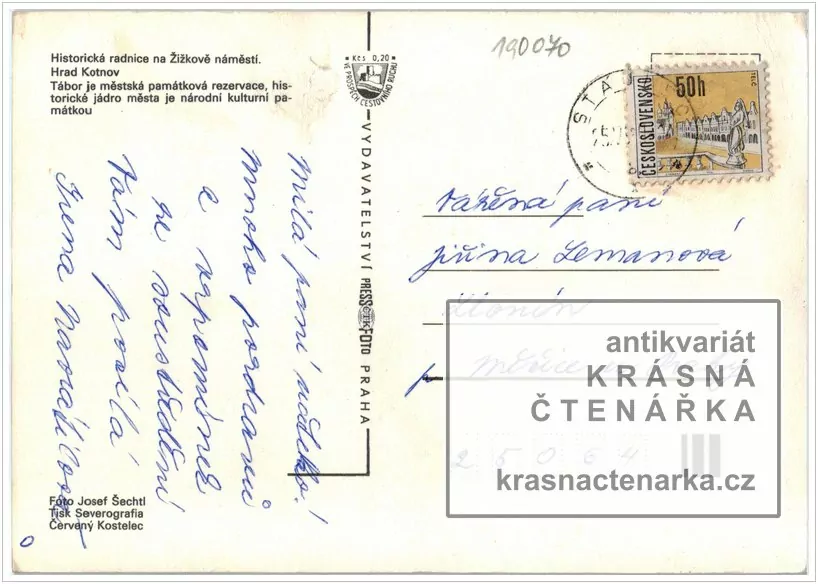 190070
Historická radnice na Žižkově náměstí.
Hrad Kotnov
Tábor je městská památková rezervace, his-
torické jádro města je národní kulturní pa-
mátkou
Kčs 0,20
VE PROSPĚCH CESTOVNÍHO RUCHU
VYDAVATELSTVÍ PRESSFOTO PRAHA
ČTK
50h
ČESKOSLOVENSKO
TELČ
Milá paní učitelko!
Mnoho pozdravů
a vzpomínek
ze soustředění
Vám posílá
Irena Navrátilová
Vážená paní
Jiřina Lemanová
Klonín
Měšice u Prahy
25064
Foto Josef Šechtl
Tisk Severografia
Červený Kostelec
antikvariát
KRÁSNÁ
ČTENÁŘKA
krasnactenarka.cz